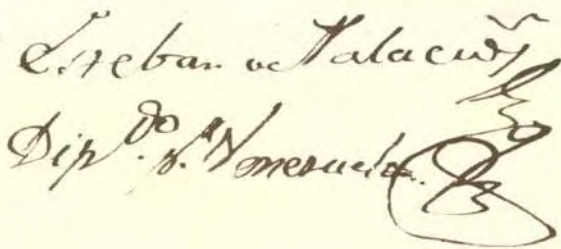 Esteban de Palacios
Dip.do p.r Venezuela.